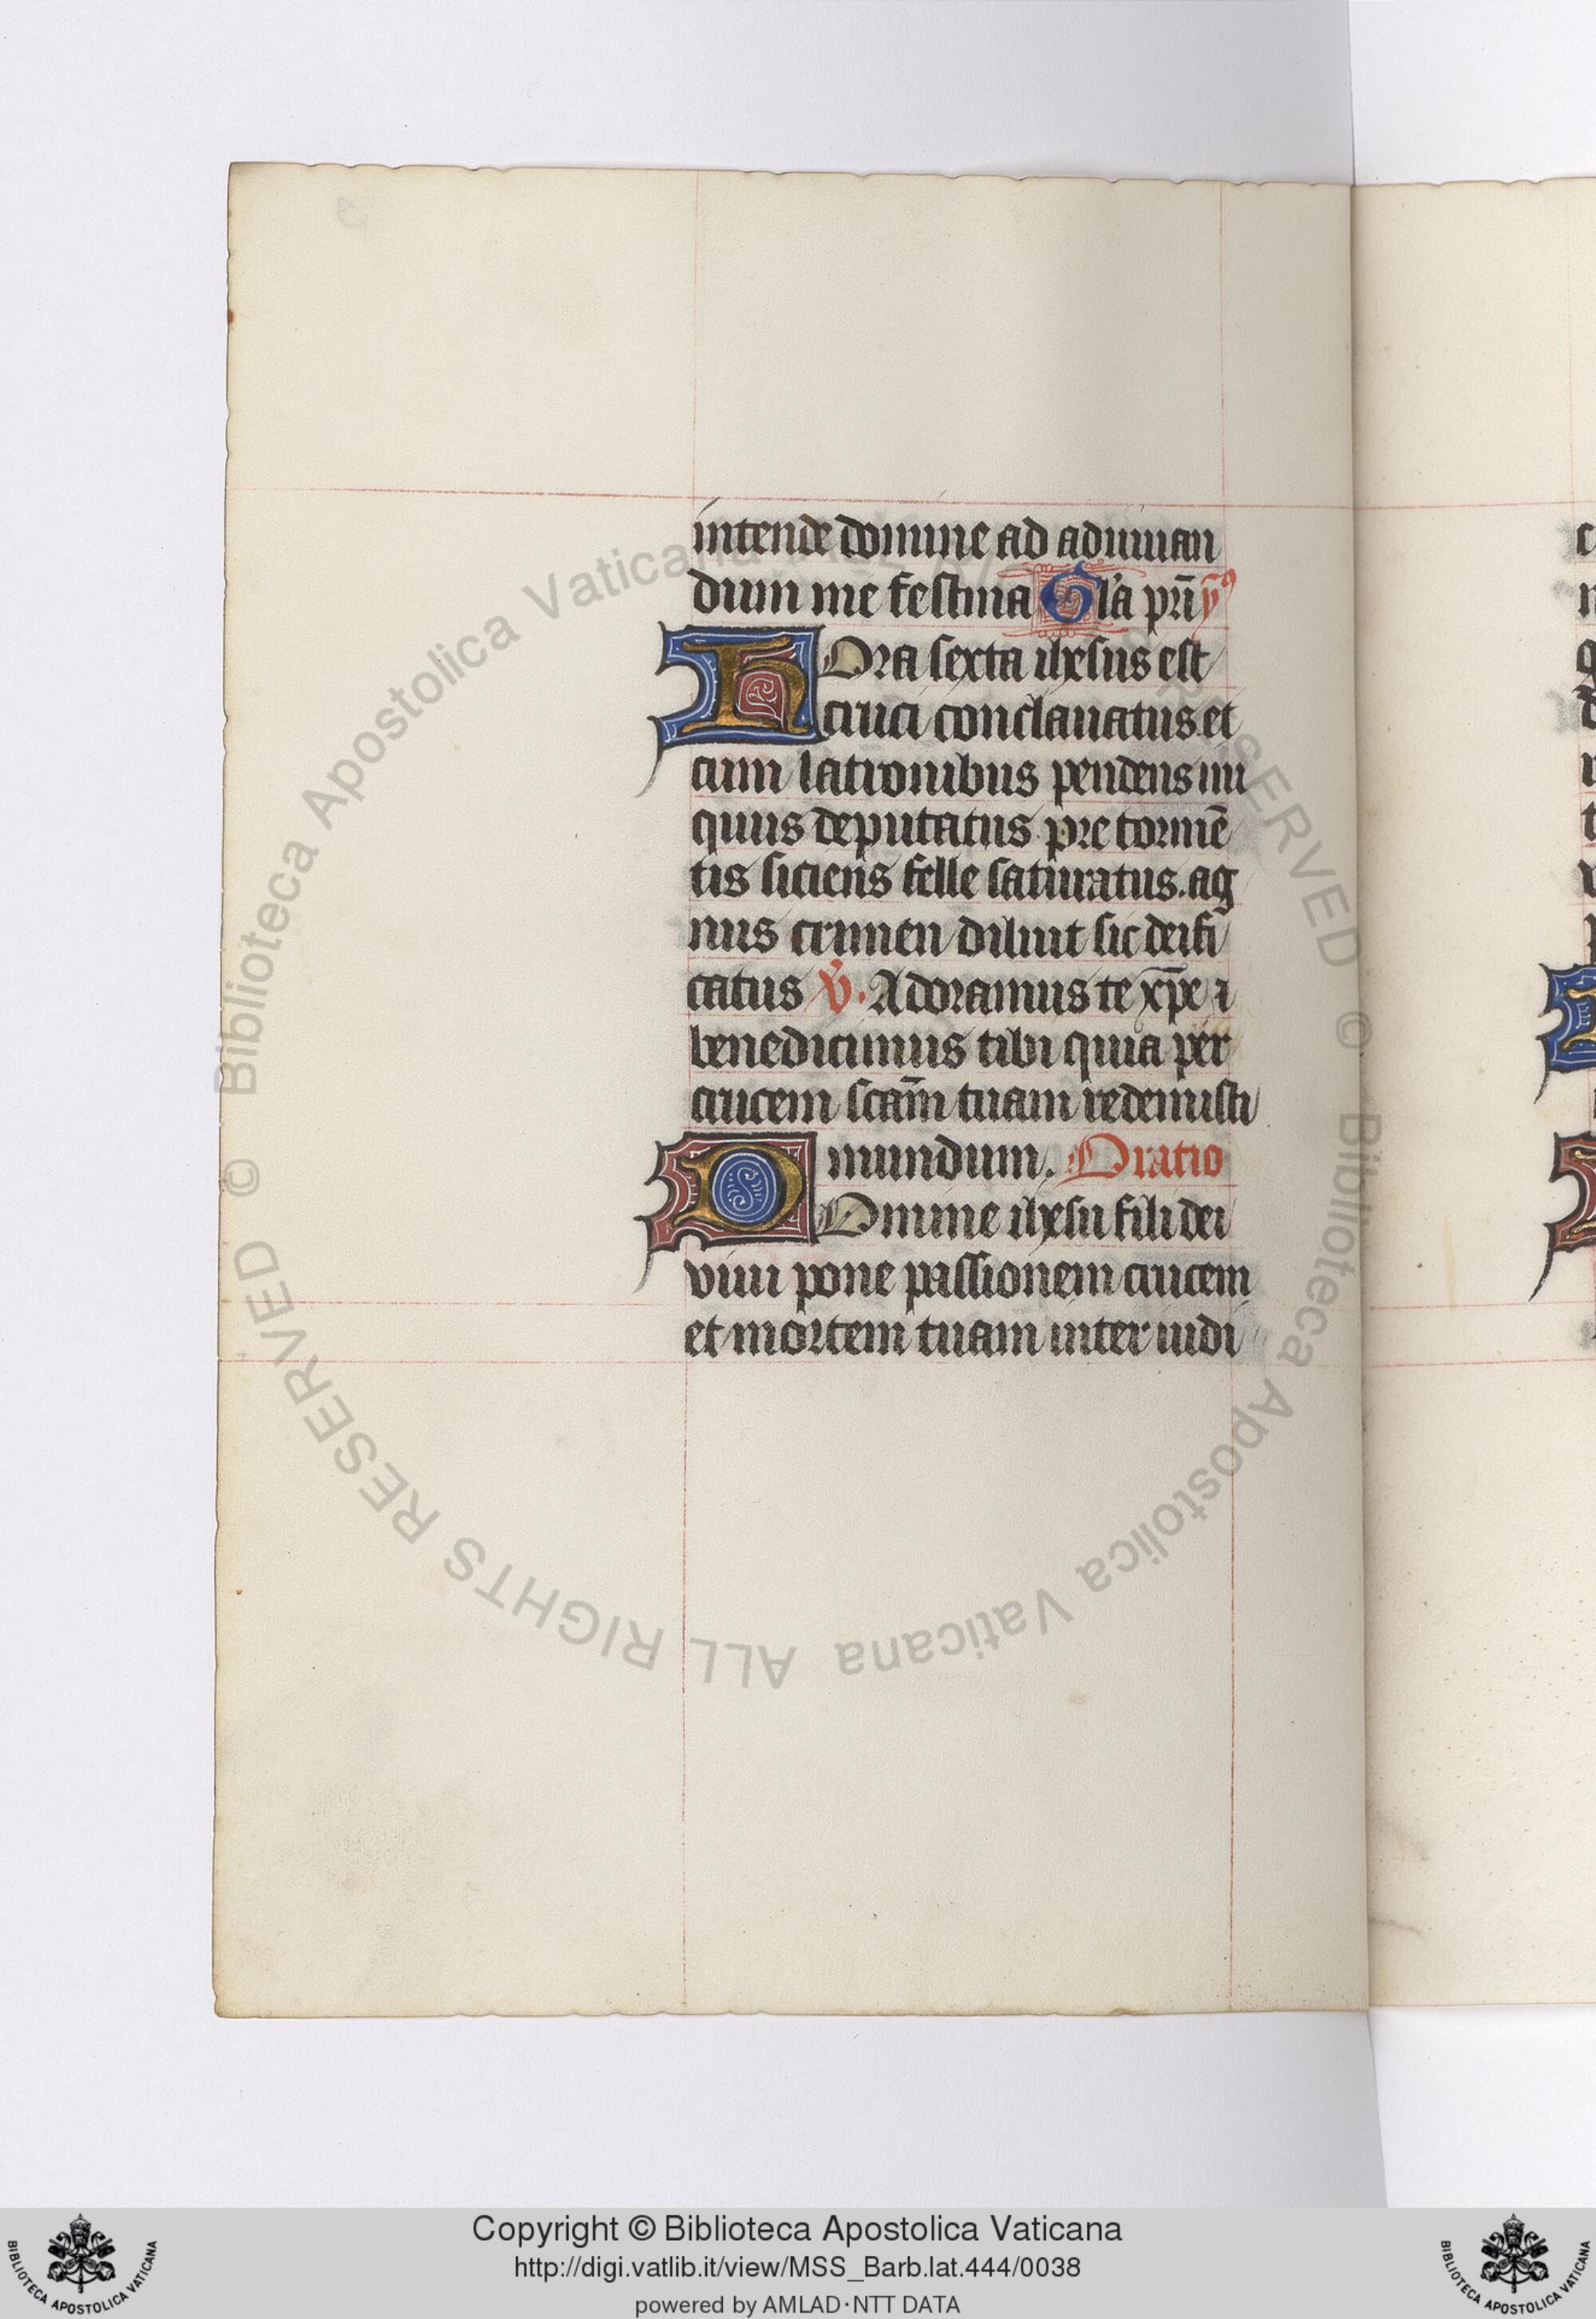 intende domine ad adiuuan
dum me festina Gl'a pr̄i ỹ⁹
HOra sexta ihesus est
cruci conclauatus et
cum latronibus pendens ini
quus deputatus pre tormē
tis siciens felle saturatus. ag
nus crimen diluit sic deifi
catus v̄. Adoramus te xp̄e ⁊
benedicimus tibi quia per
crucem scām tuam redemisti
mundum. Oratio
DOmine ihesu fili dei
viui pone passionem crucem
et mortem tuam inter iudi
Biblioteca Apostolica Vaticana
ALL RIGHTS RESERVED ©
Biblioteca Apostolica Vaticana
RESERVED ©
Copyright © Biblioteca Apostolica Vaticana
http://digi.vatlib.it/view/MSS_Barb.lat.444/0038
powered by AMLAD·NTT DATA
BIBLIOTECA APOSTOLICA VATICANA
BIBLIOTECA APOSTOLICA VATICANA